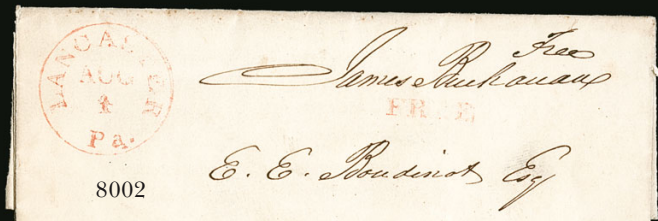 LANCASTER
AUG
4
Pa.
Free
James Buchanan
FREE
E. E. Boudinot Esq
8002